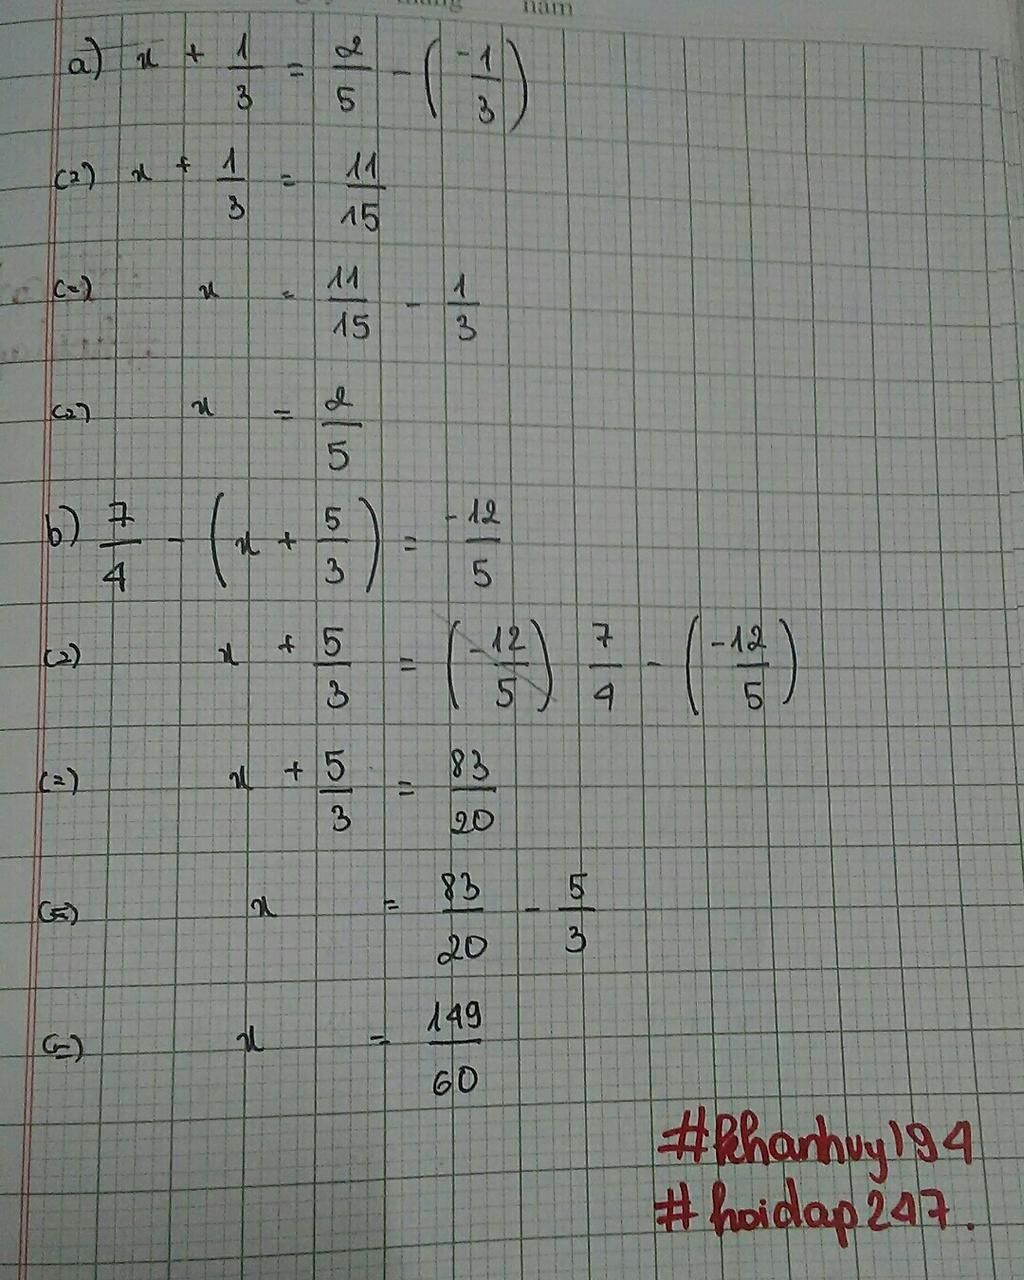 năm
a) x + 1/3 = 2/5 - (-1/3)
(=) x + 1/3 = 11/15
(=) x = 11/15 - 1/3
(=) x = 2/5
b) 7/4 - (x + 5/3) = -12/5
(=) x + 5/3 = 7/4 - (-12/5)
(=) x + 5/3 = 83/20
(=) x = 83/20 - 5/3
(=) x = 149/60
#khanhuy194
#hoidap247.